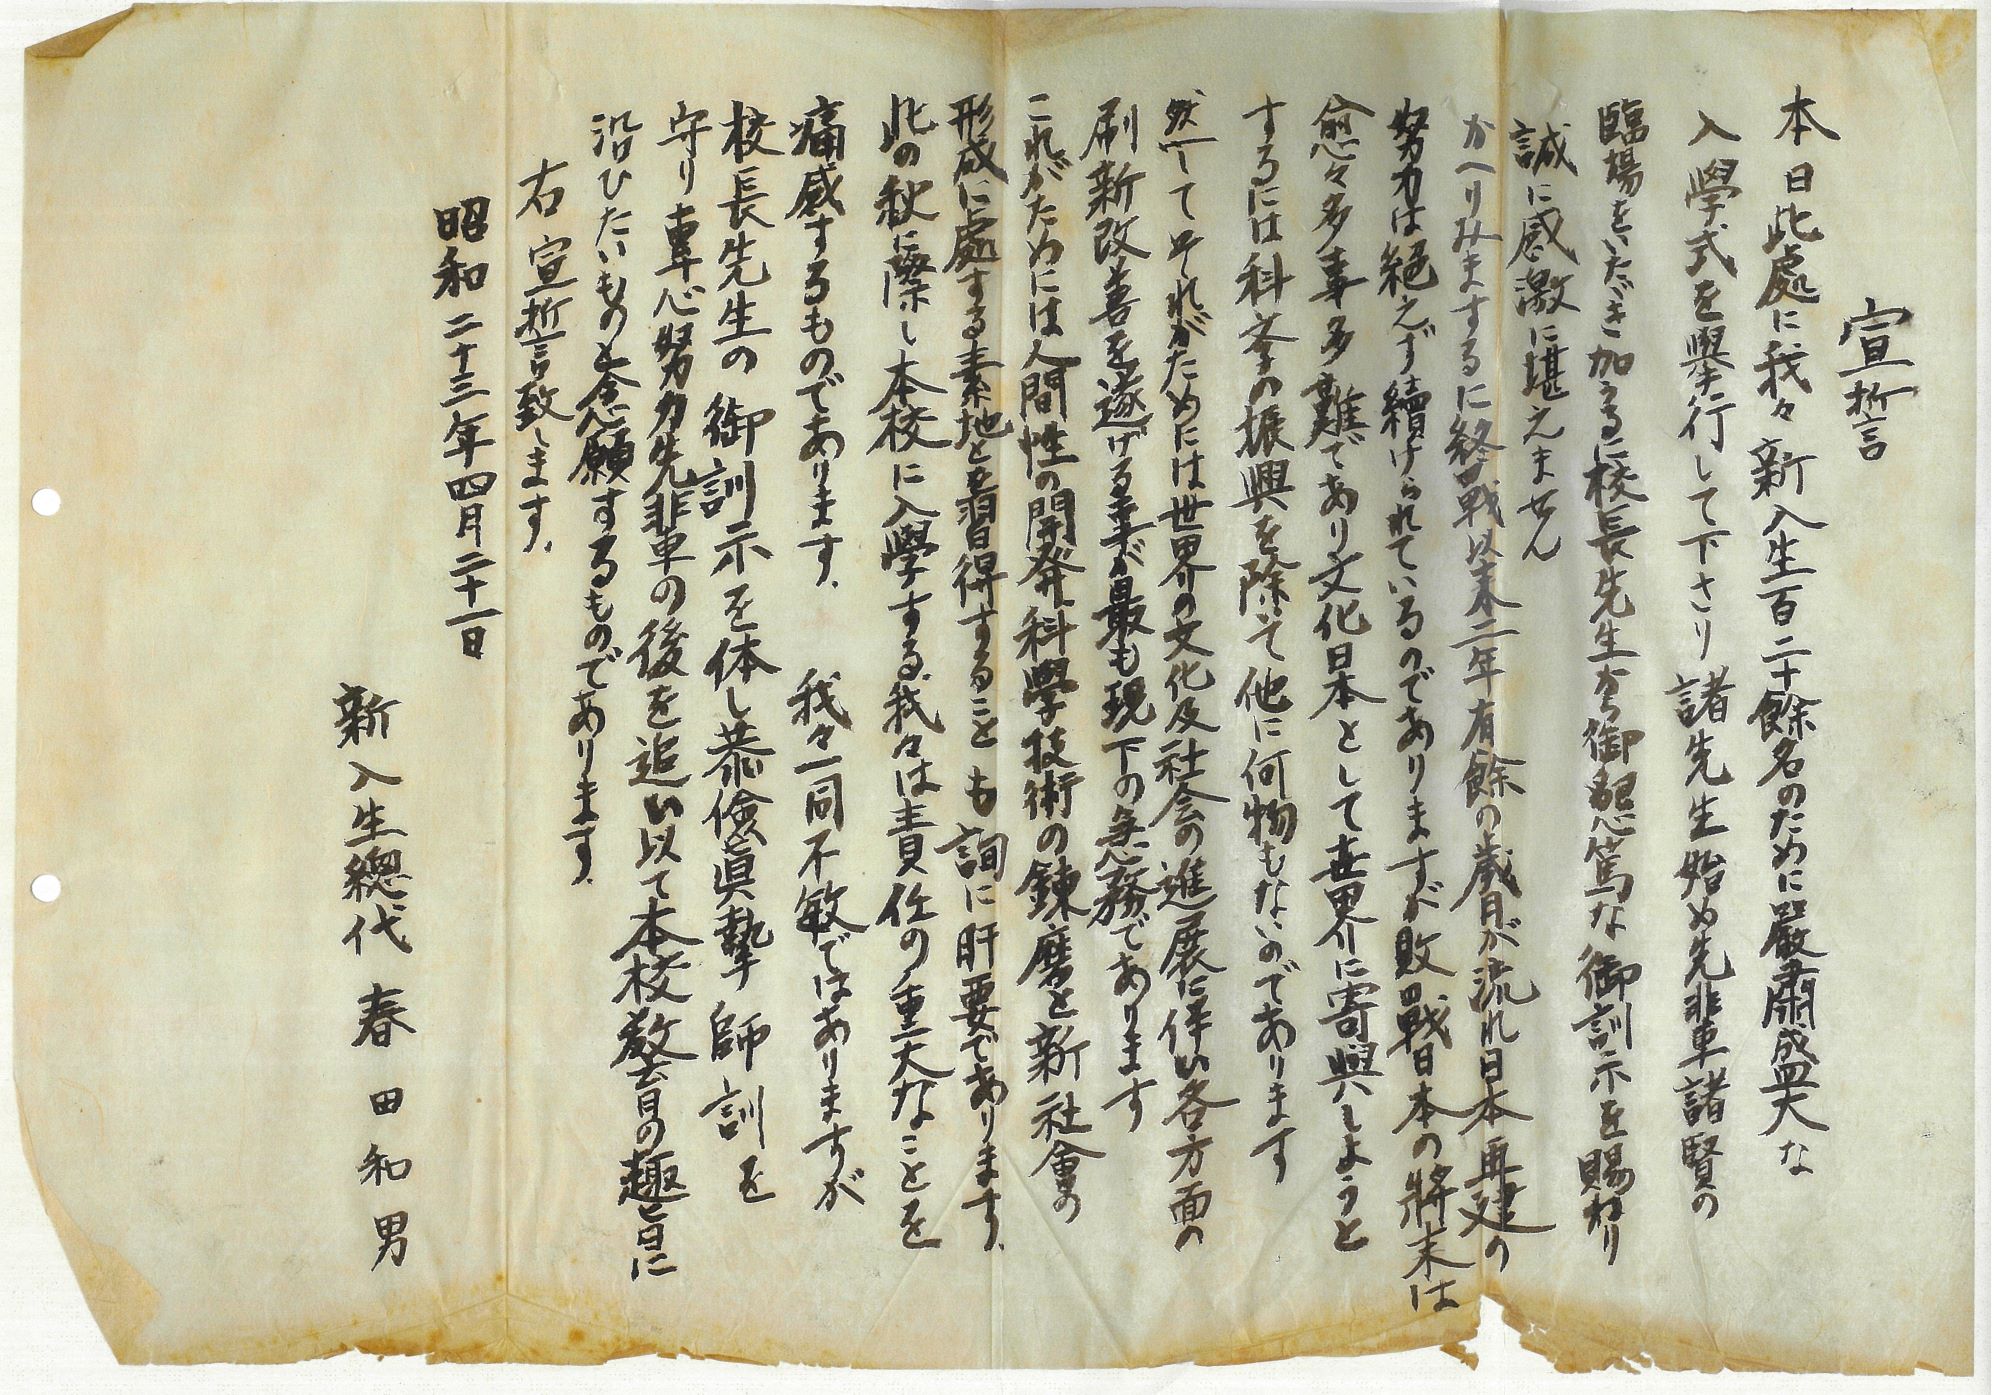 宣誓
本日此處に我々新入生百二十餘名のために嚴肅盛大な
入學式を擧行して下さり諸先生始め先輩諸賢の
臨場をいただき加うるに校長先生から御懇篤な御訓示を賜わり
誠に感激に堪えません
かへりみまするに終戰以来二年有餘の歳月が流れ日本再建の
努力は絶えず續けられているのでありますが敗戰日本の將来は
愈々多事多難であり文化日本として世界に寄與しようと
するには科学の振興を除いて他に何物もないのであります
然してそれがためには世界の文化及社会の進展に伴い各方面の
刷新改善を遂げる事が最も現下の急務であります
これがためには人間性の開発科學技術の錬磨と新社會の
形成に處する素地を習得することも詢に肝要であります。
此の秋に際し本校に入學する我々は責任の重大なことを
痛感するものであります。我々一同不敏ではありますが
校長先生の御訓示を体し恭儉眞摯師訓を
守り専心努力先輩の後を追い以て本校教育の趣旨に
沿ひたいものと念願するものであります。
右宣誓致します。
昭和二十三年四月二十一日
新入生總代 春田和男